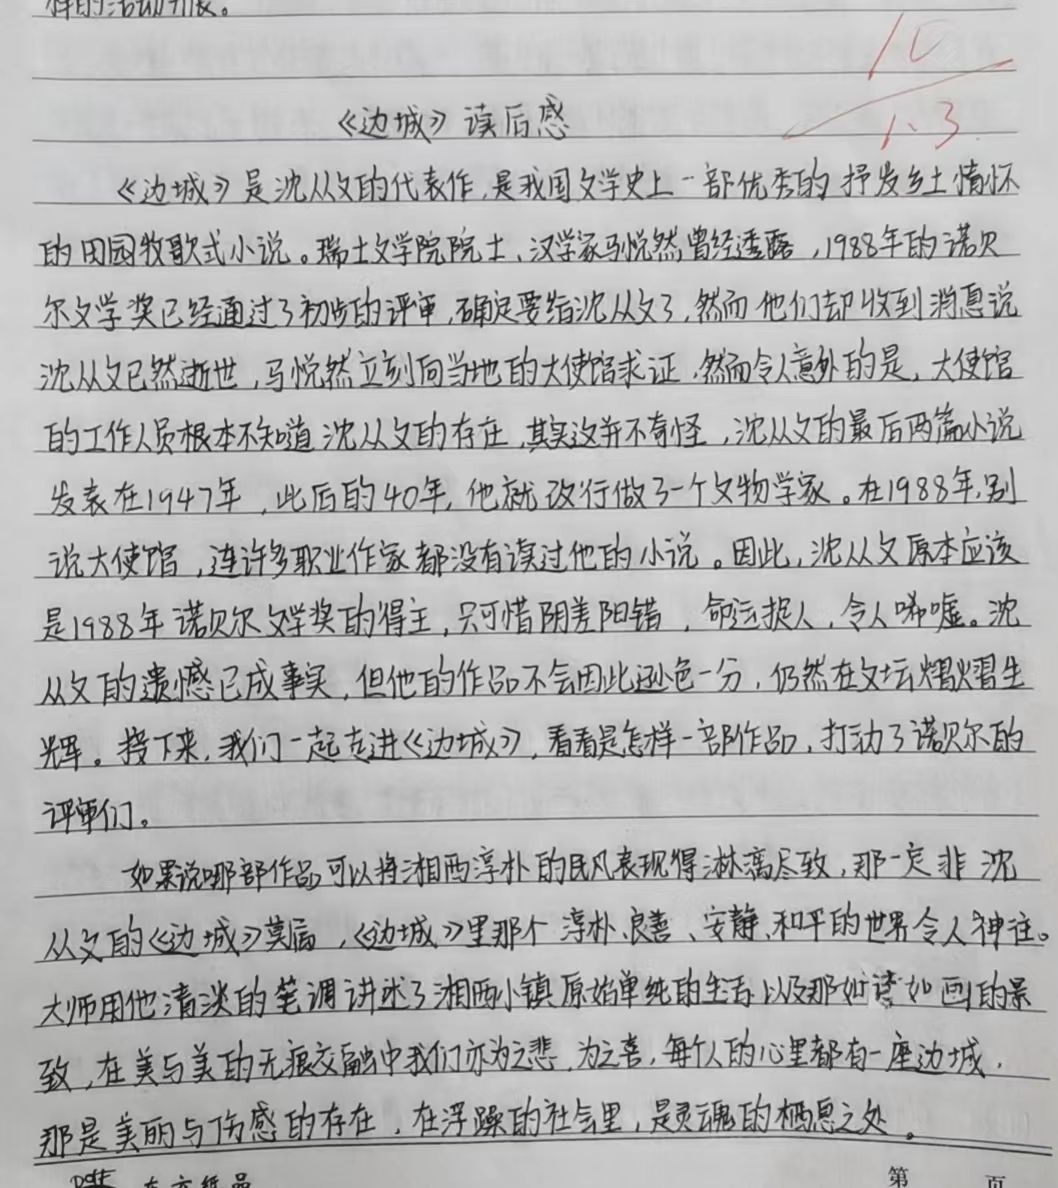 样的活动开展。
10
1.3
《边城》读后感
《边城》是沈从文的代表作,是我国文学史上一部优秀的抒发乡土情怀
的田园牧歌式小说。瑞士文学院院士、汉学家马悦然曾经透露,1988年的诺贝
尔文学奖已经通过了初步的评审,确定要给沈从文了,然而他们却收到消息说
沈从文已然逝世,马悦然立刻向当地的大使馆求证,然而令人意外的是,大使馆
的工作人员根本不知道沈从文的存在,其实这并不奇怪,沈从文的最后两篇小说
发表在1947年,此后的40年,他就改行做了一个文物学家。在1988年,别
说大使馆,连许多职业作家都没有读过他的小说。因此,沈从文原本应该
是1988年诺贝尔文学奖的得主,只可惜阴差阳错,命运捉人,令人唏嘘。沈
从文的遗憾已成事实,但他的作品不会因此逊色一分,仍然在文坛熠熠生
辉。接下来,我们一起走进《边城》,看看是怎样一部作品,打动了诺贝尔的
评审们。
如果说哪部作品可以将湘西淳朴的民风表现得淋漓尽致,那一定非沈
从文的《边城》莫属,《边城》里那个淳朴、良善、安静、和平的世界令人神往。
大师用他清淡的笔调讲述了湘西小镇原始单纯的生活以及那如诗如画的景
致,在美与美的无痕交融中我们亦为之悲,为之喜,每个人的心里都有一座边城,
那是美丽与伤感的存在,在浮躁的社会里,是灵魂的栖息之处。
第 页